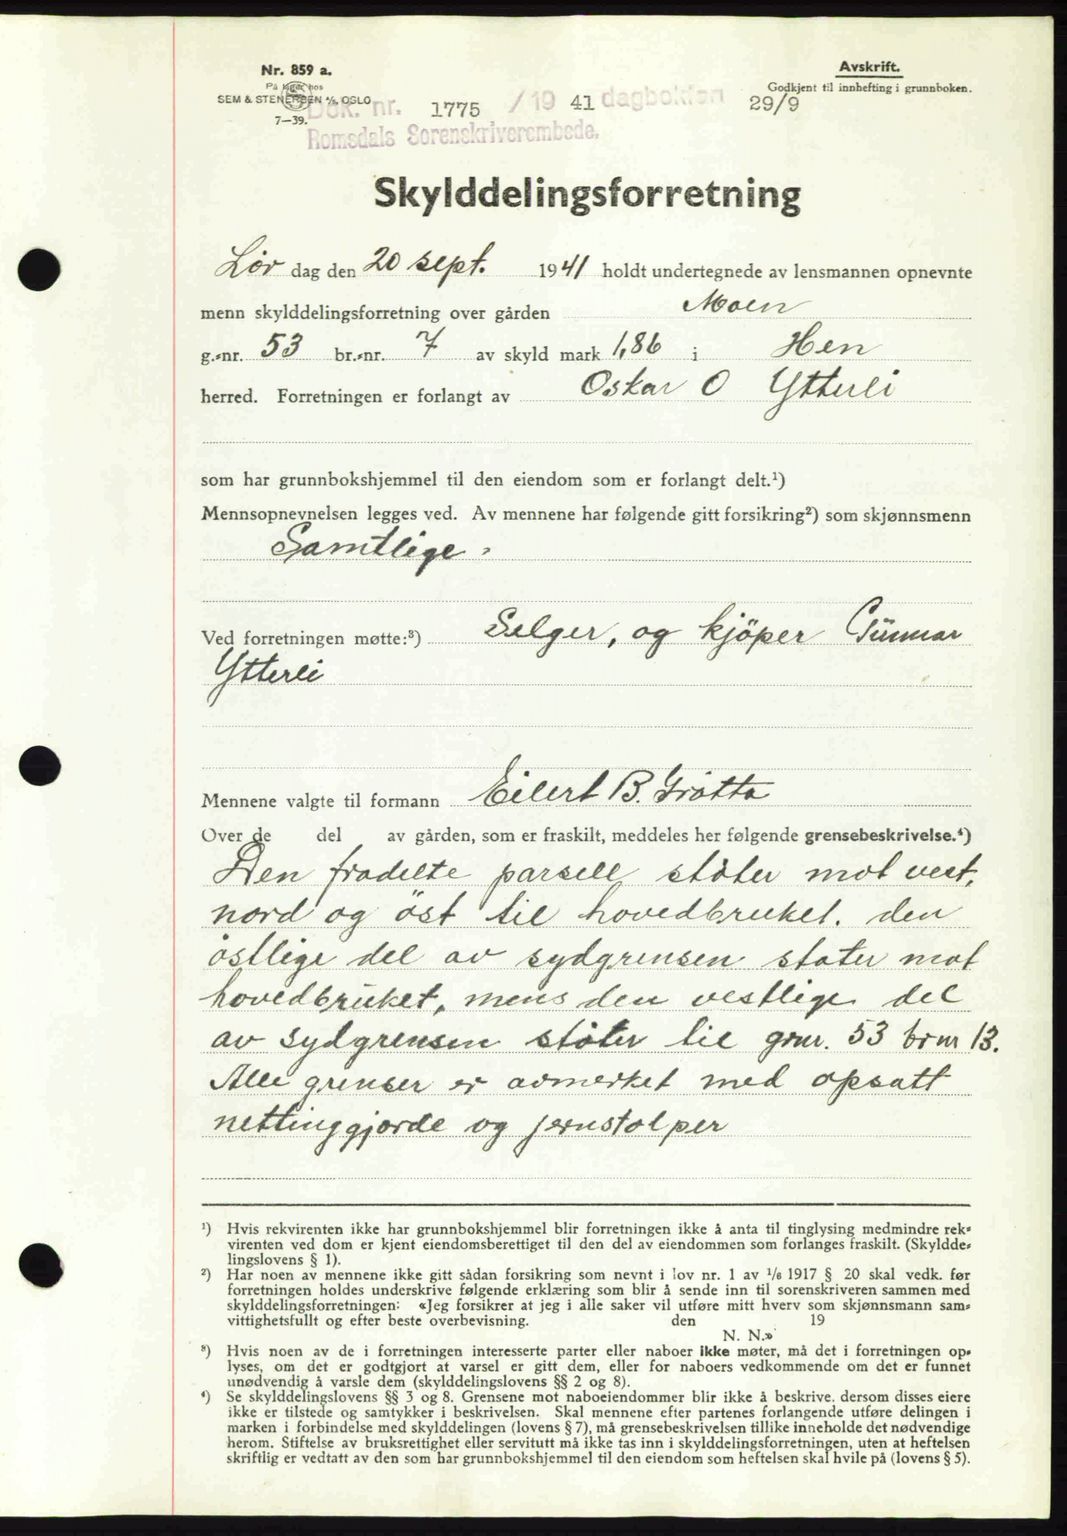 Nr. 859 a.
På lager hos
SEM & STENERSEN A/S, OSLO
7—39.
Avskrift.
Godkjent til innhefting i grunnboken.
Dok. nr. 1775 / 19 41 dagboken 29/9
Romsdals Sorenskriverembede.
Skylddelingsforretning
Lør dag den 20 sept. 1941 holdt undertegnede av lensmannen opnevnte
menn skylddelingsforretning over gården Moen
g.-nr. 53 br.-nr. 7 av skyld mark 1,86 i Hen
herred. Forretningen er forlangt av Oskar O Ytterli
som har grunnbokshjemmel til den eiendom som er forlangt delt.¹)
Mennsopnevnelsen legges ved. Av mennene har følgende gitt forsikring²) som skjønnsmenn
Samtlige.
Ved forretningen møtte:³) Selger, og kjöper Gunnar
Ytterli
Mennene valgte til formann Eilert B. Grötta
Over de del av gården, som er fraskilt, meddeles her følgende grensebeskrivelse.⁴)
Den fradelte parsell stöter mot vest,
nord og öst til hovedbruket. den
östlige del av sydgrensen støter mot
hovedbruket, mens den vestlige del
av sydgrensen stöter til gnr. 53 brnr 13.
Alle grenser er avmerket med opsatt
nettinggjerde og jernstolper
¹) Hvis rekvirenten ikke har grunnbokshjemmel blir forretningen ikke å anta til tinglysing medmindre rek-
virenten ved dom er kjent eiendomsberettiget til den del av eiendommen som forlanges fraskilt. (Skyldde-
lingslovens § 1).
²) Har noen av mennene ikke gitt sådan forsikring som nevnt i lov nr. 1 av 1/6 1917 § 20 skal vedk. før
forretningen holdes underskrive følgende erklæring som blir å sende inn til sorenskriveren sammen med
skylddelingsforretningen: «Jeg forsikrer at jeg i alle saker vil utføre mitt hverv som skjønnsmann sam-
vittighetsfullt og efter beste overbevisning. den 19
N. N.»
³) Hvis noen av de i forretningen interesserte parter eller naboer ikke møter, må det i forretningen op-
lyses, om det er godtgjort at varsel er gitt dem, eller for naboers vedkommende om det er funnet
unødvendig å varsle dem (skylddelingslovens §§ 2 og 8).
⁴) Se skylddelingslovens §§ 3 og 8. Grensene mot naboeiendommer blir ikke å beskrive, dersom disses eiere
ikke er tilstede og samtykker i beskrivelsen. Skal mennene efter partenes forlangende utføre delingen i
marken i forbindelse med skylddelingen (lovens § 7), må grensebeskrivelsen tillike inneholde det nødvendige
herom. Stiftelse av bruksrettighet eller servitutt må ikke tas inn i skylddelingsforretningen, uten at heftelsen
skriftlig er vedtatt av den som har grunnbokshjemmel til den eiendom som heftelsen skal hvile på (lovens § 5).